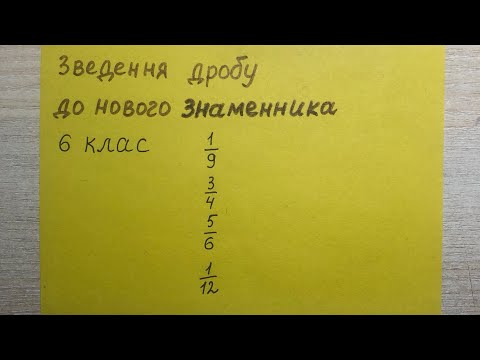 Зведення дробу
до нового знаменника
6 клас
1/9
3/4
5/6
1/12